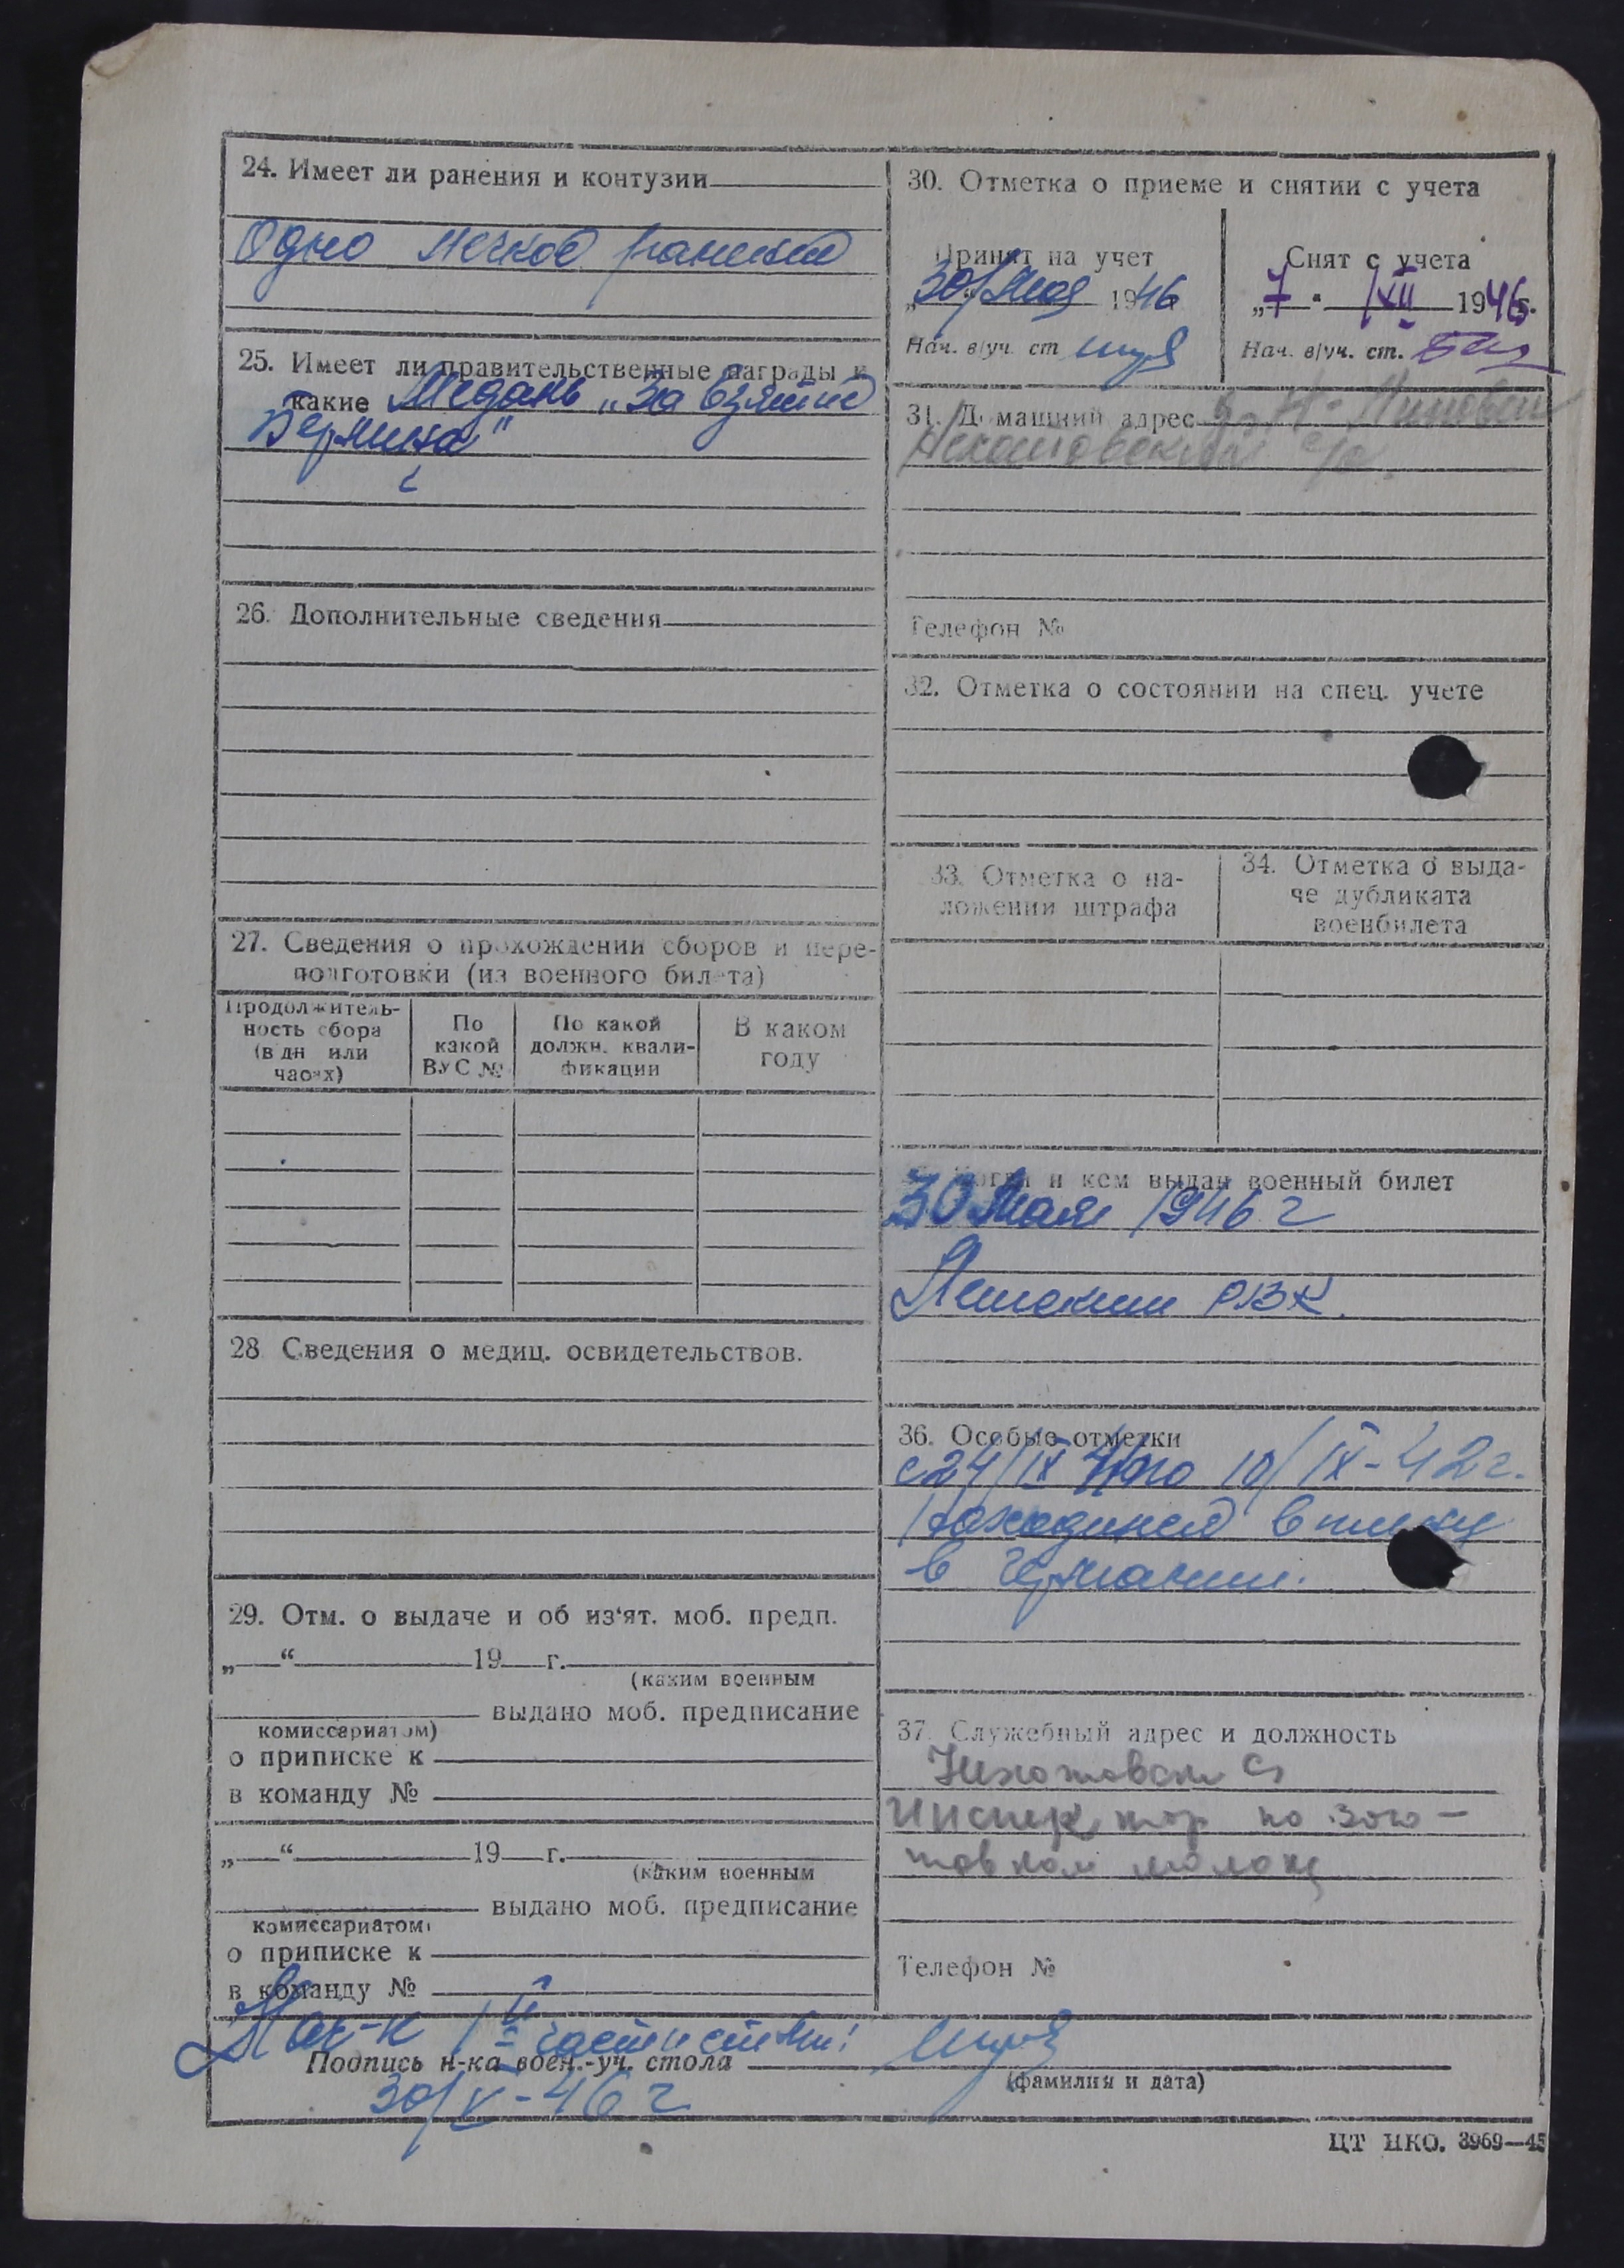 24. Имеет ли ранения и контузии
Одно легкое ранение
25. Имеет ли правительственные награды и
какие Медаль „За взятие
Берлина"
26. Дополнительные сведения
27. Сведения о прохождении сборов и пере-
подготовки (из военного билета)
Продолжитель-
ность сбора
(в дн или
часах)
По
какой
ВУС №
По какой
должн. квали-
фикации
В каком
году
28 Сведения о медиц. освидетельствов.
29. Отм. о выдаче и об из'ят. моб. предп.
„ “ 19 г.
(каким военным
выдано моб. предписание
комиссариатом)
о приписке к
в команду №
„ “ 19 г.
(каким военным
выдано моб. предписание
комиссариатом)
о приписке к
в команду №
30. Отметка о приеме и снятии с учета
Принят на учет
30/Мая 1946
Нач. в/уч. ст
Снят с учета
„7" XII 1946г.
Нач. в/уч. ст.
31. Домашний адрес д.
с/с.
Телефон №
32. Отметка о состоянии на спец. учете
33. Отметка о на-
ложении штрафа
34. Отметка о выда-
че дубликата
военбилета
Когда и кем выдан военный билет
30 Мая 1946 г
РВК.
36. Особые отметки
с 24/IX 41 по 10/IX-42г.
находился в плену
в Германии.
37. Служебный адрес и должность
Инспектор по заго-
товкам молока
Телефон №
Нач-к II части
Подпись н-ка воен.-уч. стола
(фамилия и дата)
30/V-46 г
ЦТ НКО. 3969—45